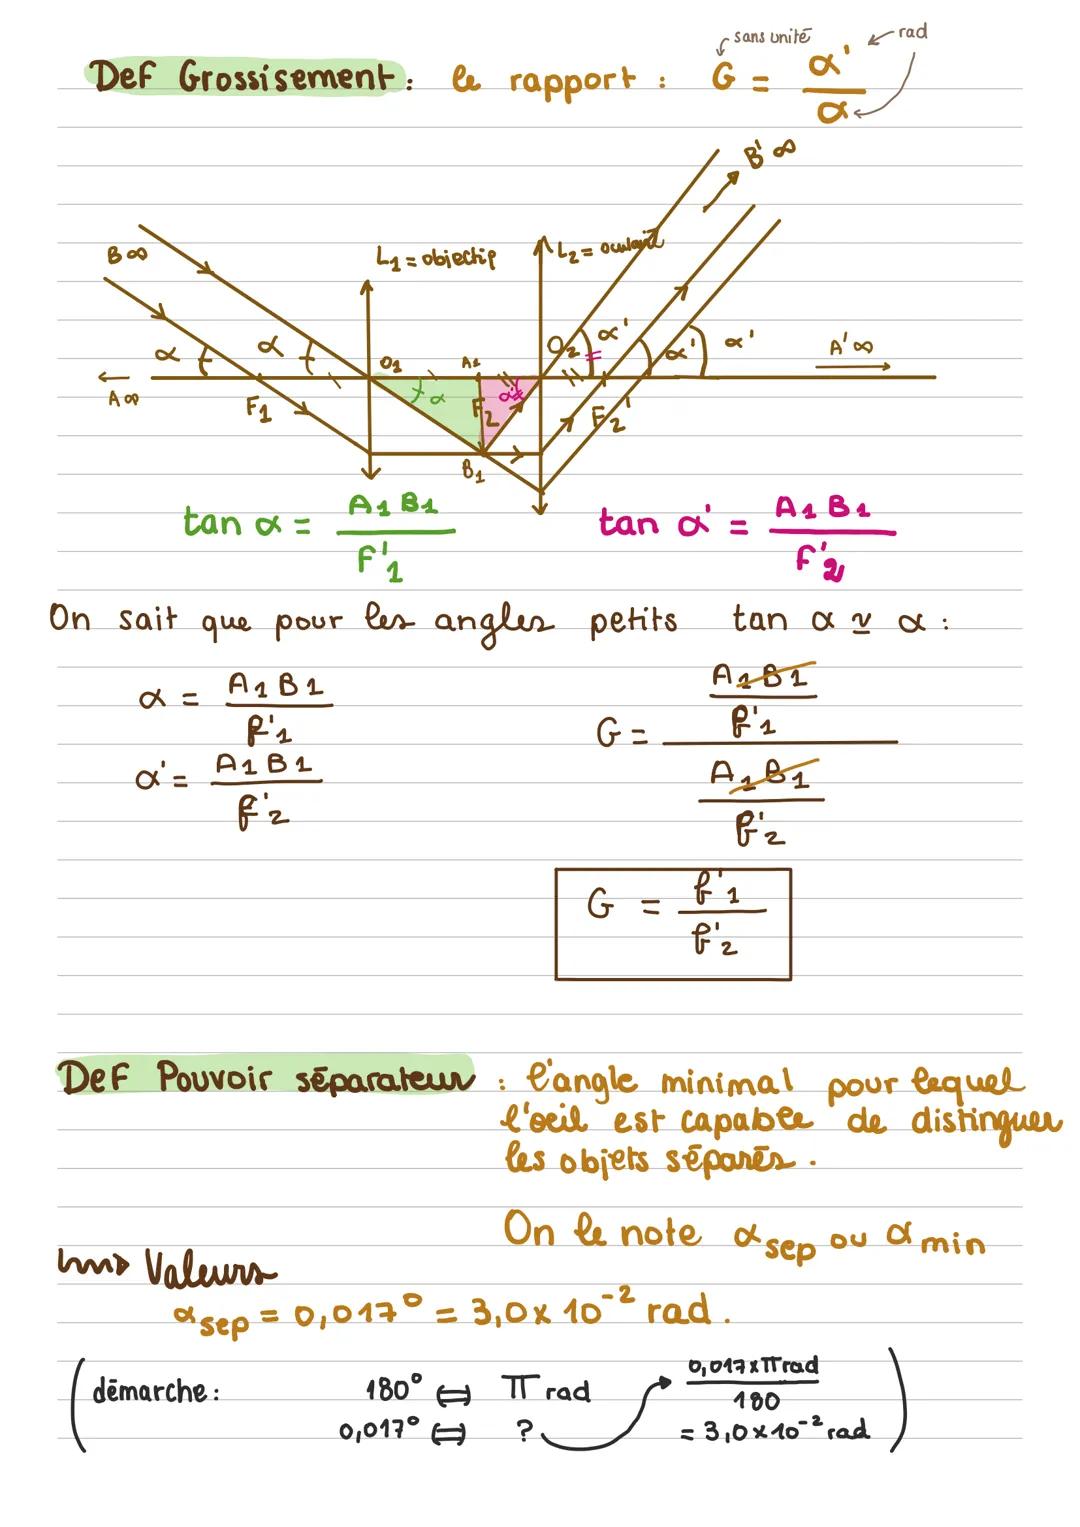 sans unité
rad
Def Grossisement : le rapport : G = α' / α
B'∞
B∞
L1 = objectif
L2 = oculaire
α
α
O1
A1
O2
α'
α'
α'
A'∞
A∞
F1
α
F2
α'
F2'
B1
tan α = A1B1 / F'1
tan α' = A1B1 / F'2
On sait que pour les angles petits tan α ≃ α :
α = A1B1 / f'1
α' = A1B1 / f'2
G = (A1B1 / f'1) / (A1B1 / f'2)
G = f'1 / f'2
Def Pouvoir séparateur : l'angle minimal pour lequel
l'oeil est capable de distinguer
les objets séparés.
On le note αsep ou αmin
Valeurs
αsep = 0,017° = 3,0 x 10⁻² rad.
démarche : 180° ⇔ π rad
0,017° ⇔ ?
0,017 x π rad / 180
= 3,0 x 10⁻² rad